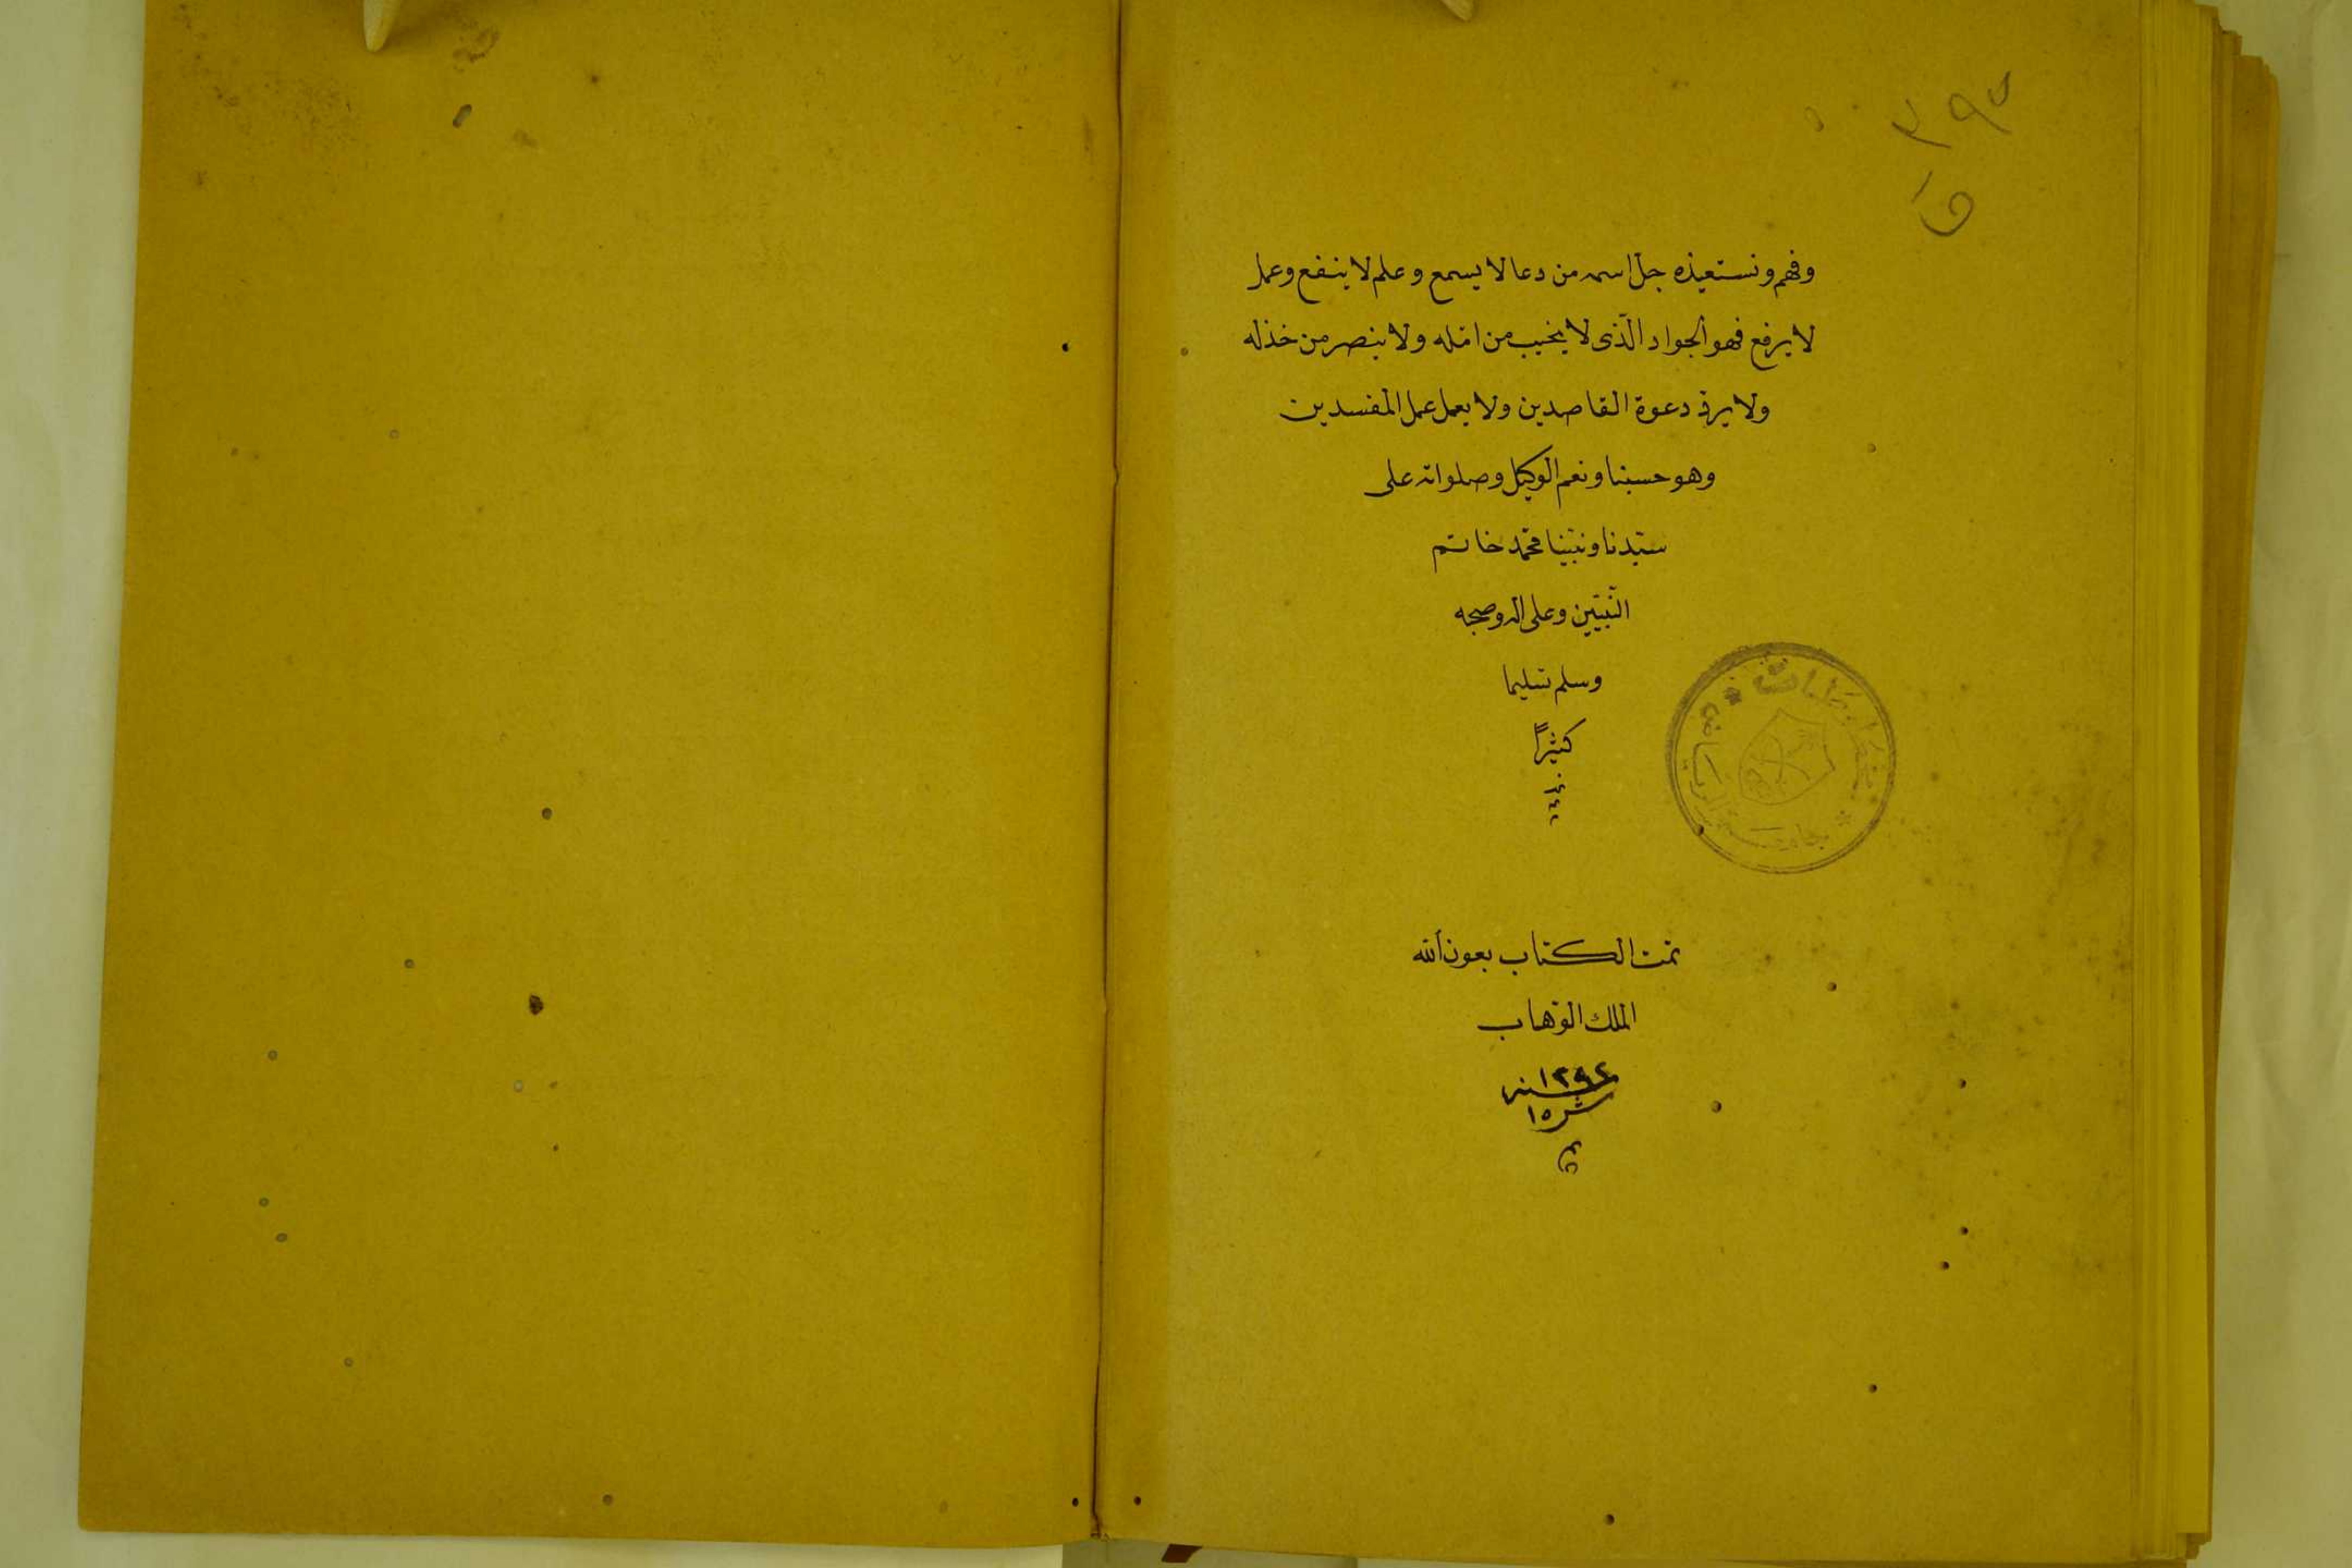 ٣٩٥
وفهم ونستعيذه جل اسمه من دعا لا يسمع وعلم لا ينفع وعمل
لا يرفع فهو الجواد الّذى لا يخيب من امّله ولا ينصر من خذله
ولا يرد دعوة القاصدين ولا يعمل عمل المفسدين
وهو حسبنا ونعم الوكيل وصلواته على
سيّدنا ونبيّنا محمّد خاتم
النّبيّين وعلى اله وصحبه
وسلم تسليما
كثيراً
تمت الكتاب بعون الله
الملك الوهّاب
سنه ١٢٩٢
ش ١٥
جامعة الرياض
المخطوطات